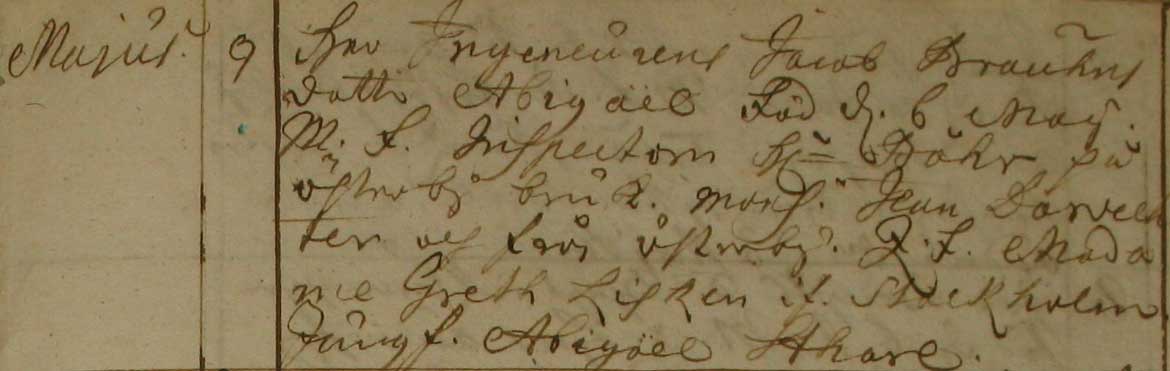 Majus. 9 Herr Ingeneurens Jacob Brauhns
dotter Abigaël Född d. 6 Maij.
M. F. Inspectorn Hr Böhr på
österby bruk. Mons. Jean
ter och från österby. Q. F. Mada
me Greth Lisken i Stockholm
Jungf. Abigaël